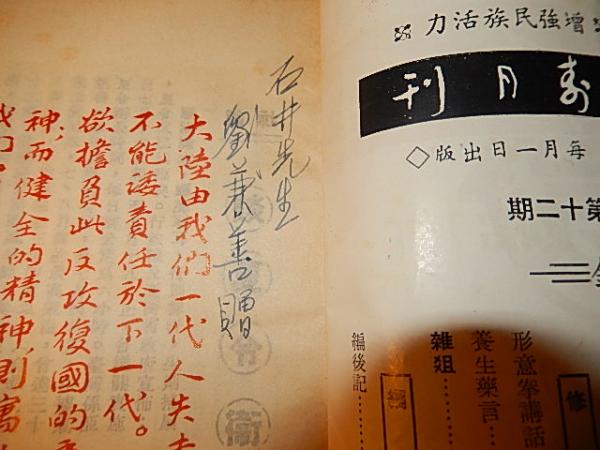 增強民族活力
壽月刊
每月一日出版◇
第十二期
修
形意拳講話
養生藥言……
雜俎
編後記………
石井先生
劉兼善贈
大陸由我們一代人失
不能諉責任於下一代。
欲擔負此反攻復國的
神,而健全的精神,則寓
我們